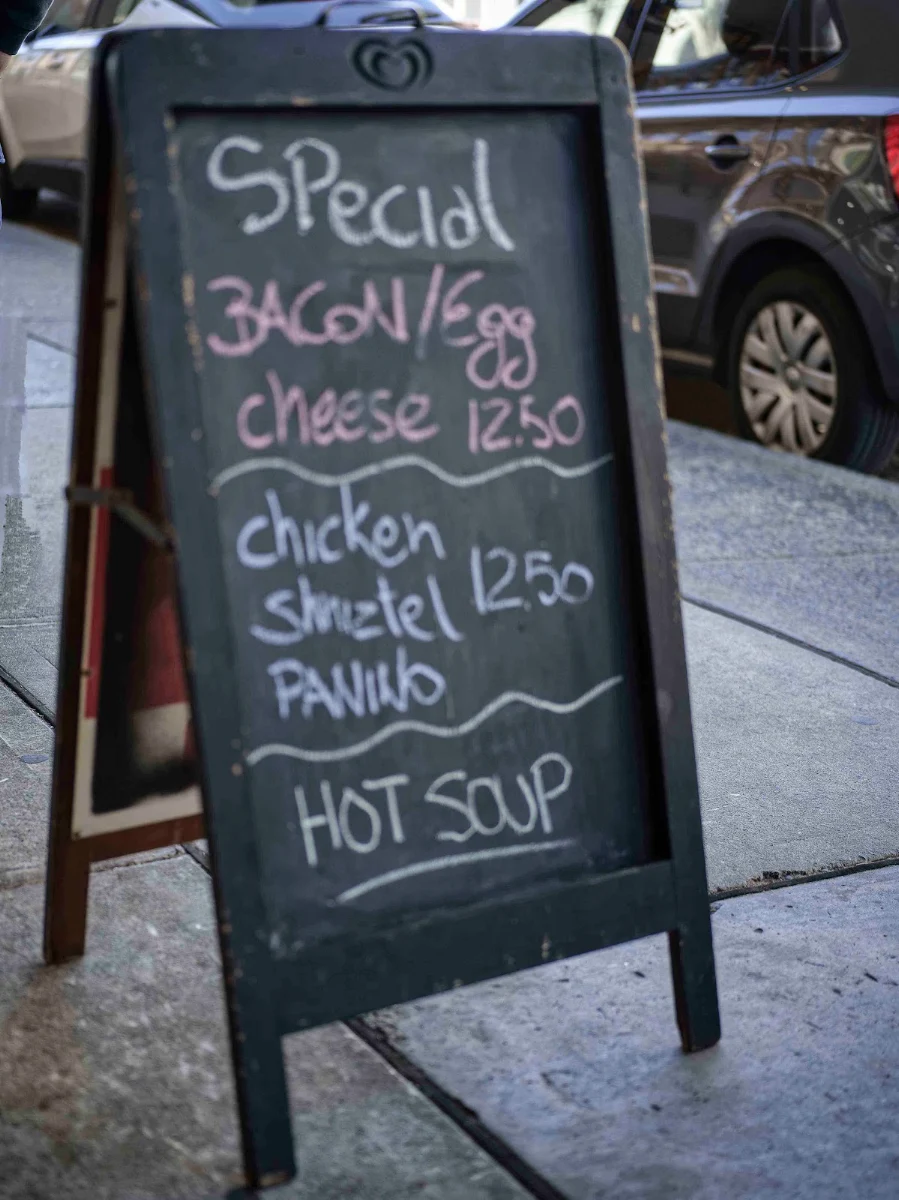 Special
BACON/Egg
cheese 12.50
chicken
Shniztel 12.50
PANINO
HOT SOUP